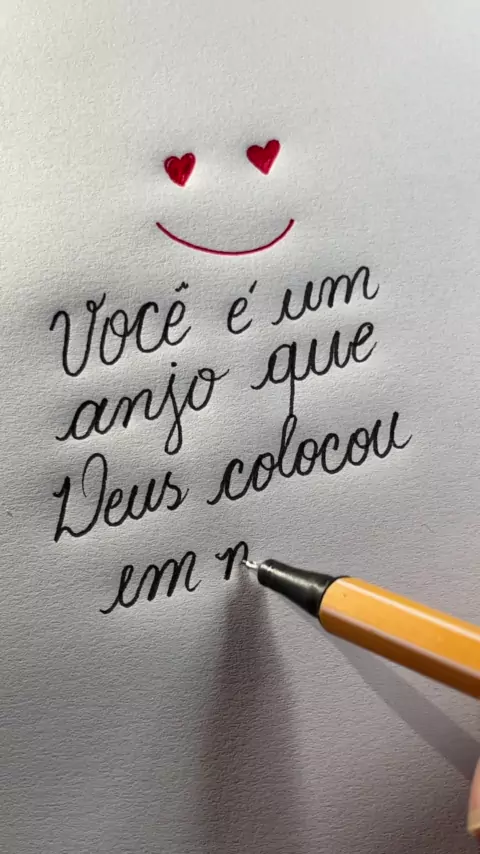 Você é um
anjo que
Deus colocou
em